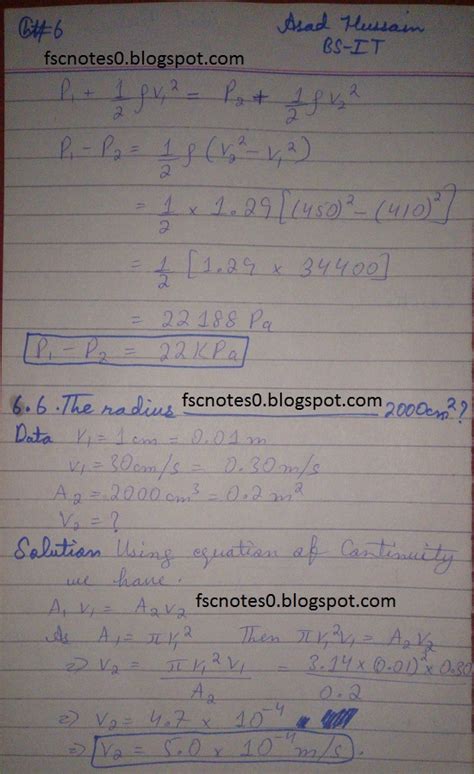 Ch#6 Asad Hussain
fscnotes0.blogspot.com BS-IT
P₁ + 1/2 ρv₁² = P₂ + 1/2 ρv₂²
P₁ - P₂ = 1/2 ρ (v₂² - v₁²)
= 1/2 × 1.29 [(450)² - (410)²]
= 1/2 [1.29 × 34400]
= 22188 Pa
P₁ - P₂ = 22KPa
fscnotes0.blogspot.com
6.6. The radius 2000cm²?
Data r₁ = 1cm = 0.01m
v₁ = 30cm/s = 0.30m/s
A₂ = 2000cm³ = 0.2m²
V₂ = ?
Solution Using equation of Continuity
we have.
A₁ v₁ = A₂v₂ fscnotes0.blogspot.com
As A₁ = πr₁² Then πr₁²v₁ = A₂v₂
⇒ v₂ = πr₁²v₁ / A₂ = 3.14 × (0.01)² × 0.30 / 0.2
⇒ v₂ = 4.7 × 10⁻⁴
⇒ v₂ = 5.0 × 10⁻⁴ m/s.